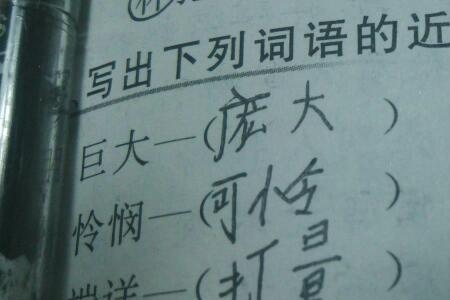 写出下列词语的近
巨大—(庞大)
怜悯—(可怜)
端详—(打量